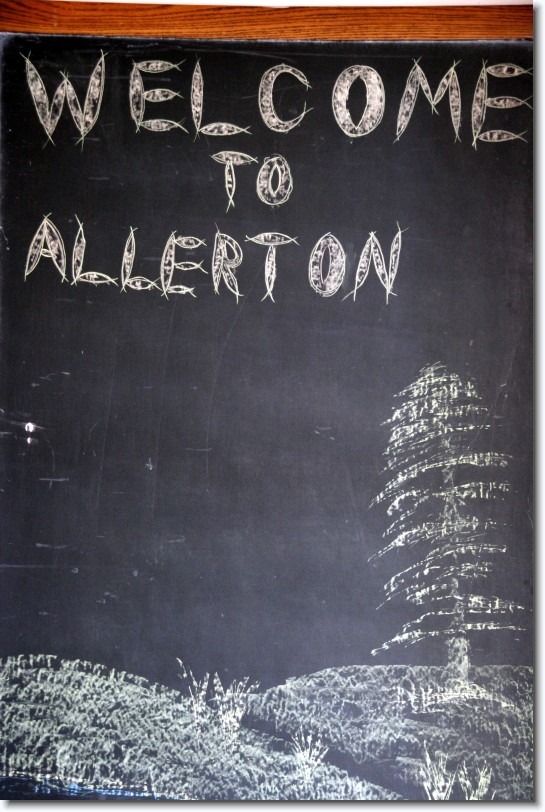 WELCOME
TO
ALLERTON